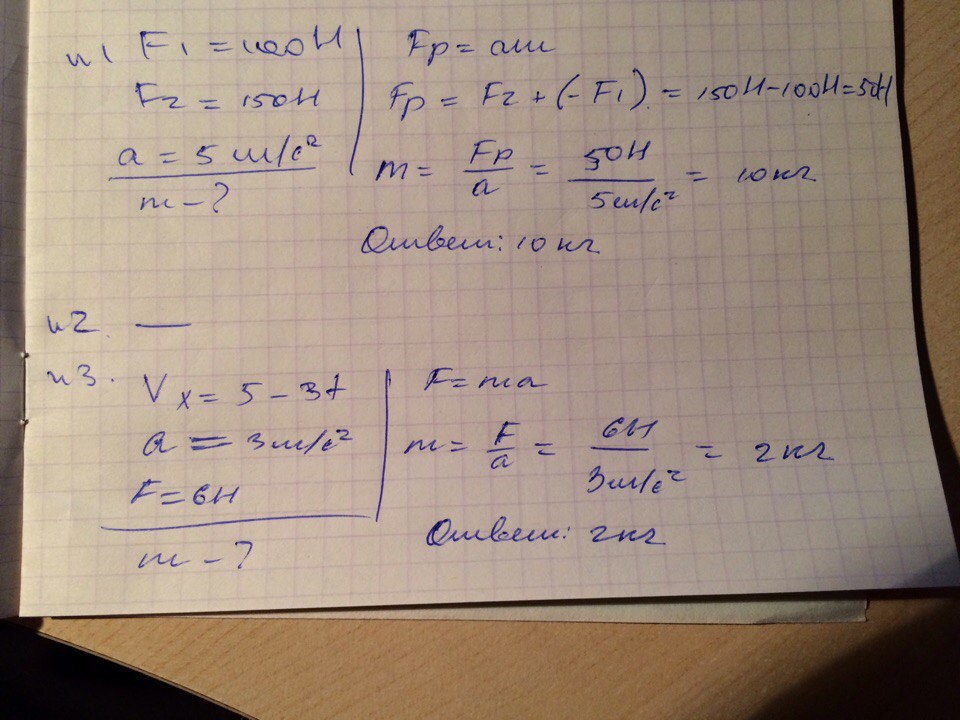 н1 F1 = 100Н
F2 = 150Н
a = 5 м/с²
m - ?
Fр = am
Fр = F2 + (-F1) = 150Н-100Н=50Н
m = Fр/a = 50Н/5м/с² = 10кг
Ответ: 10 кг
н2. —
н3. Vx = 5 - 3t
a = 3м/с²
F = 6Н
m - ?
F = ma
m = F/a = 6Н/3м/с² = 2кг
Ответ: 2кг